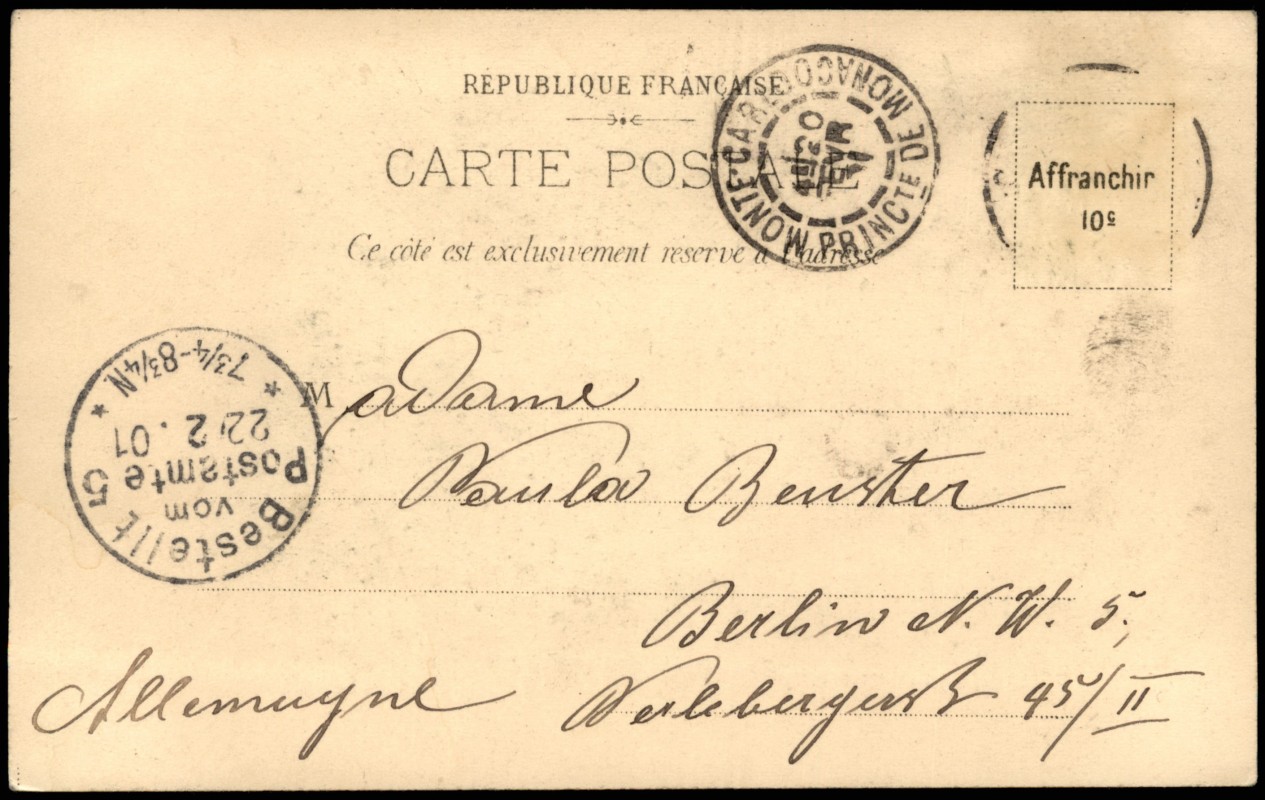 RÉPUBLIQUE FRANÇAISE
CARTE POSTALE
Ce côté est exclusivement réservé à l'adresse
MONTE-CARLO MONACO PRINCTÉ DE
20
FEVR
Affranchir
10c
Bestellt
vom
Postamte 5
22/2.01
* 7¾-8¾N *
Madame
Paula Beuster
Berlin N.W. 5.
Perlebergerstr 45/II
Allemagne